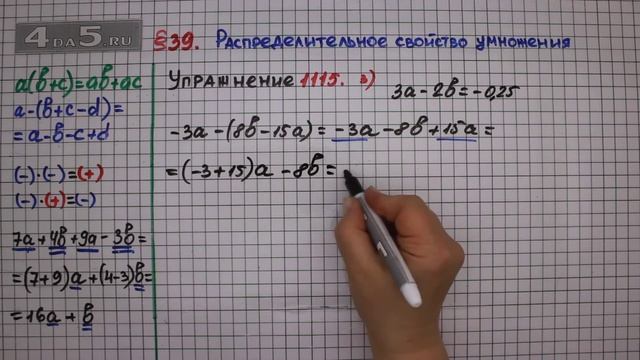 4DA5.RU
§39. Распределительное свойство умножения
a(b+c)=ab+ac
a-(b+c-d)=
=a-b-c+d
(-)·(-)=(+)
(-)·(+)=(-)
7a+4b+9a-3b=
=(7+9)a+(4-3)b=
=16a+b
Упражнение 1115. в)
3a-2b=-0,25
-3a-(8b-15a)=-3a-8b+15a=
=(-3+15)a-8b=